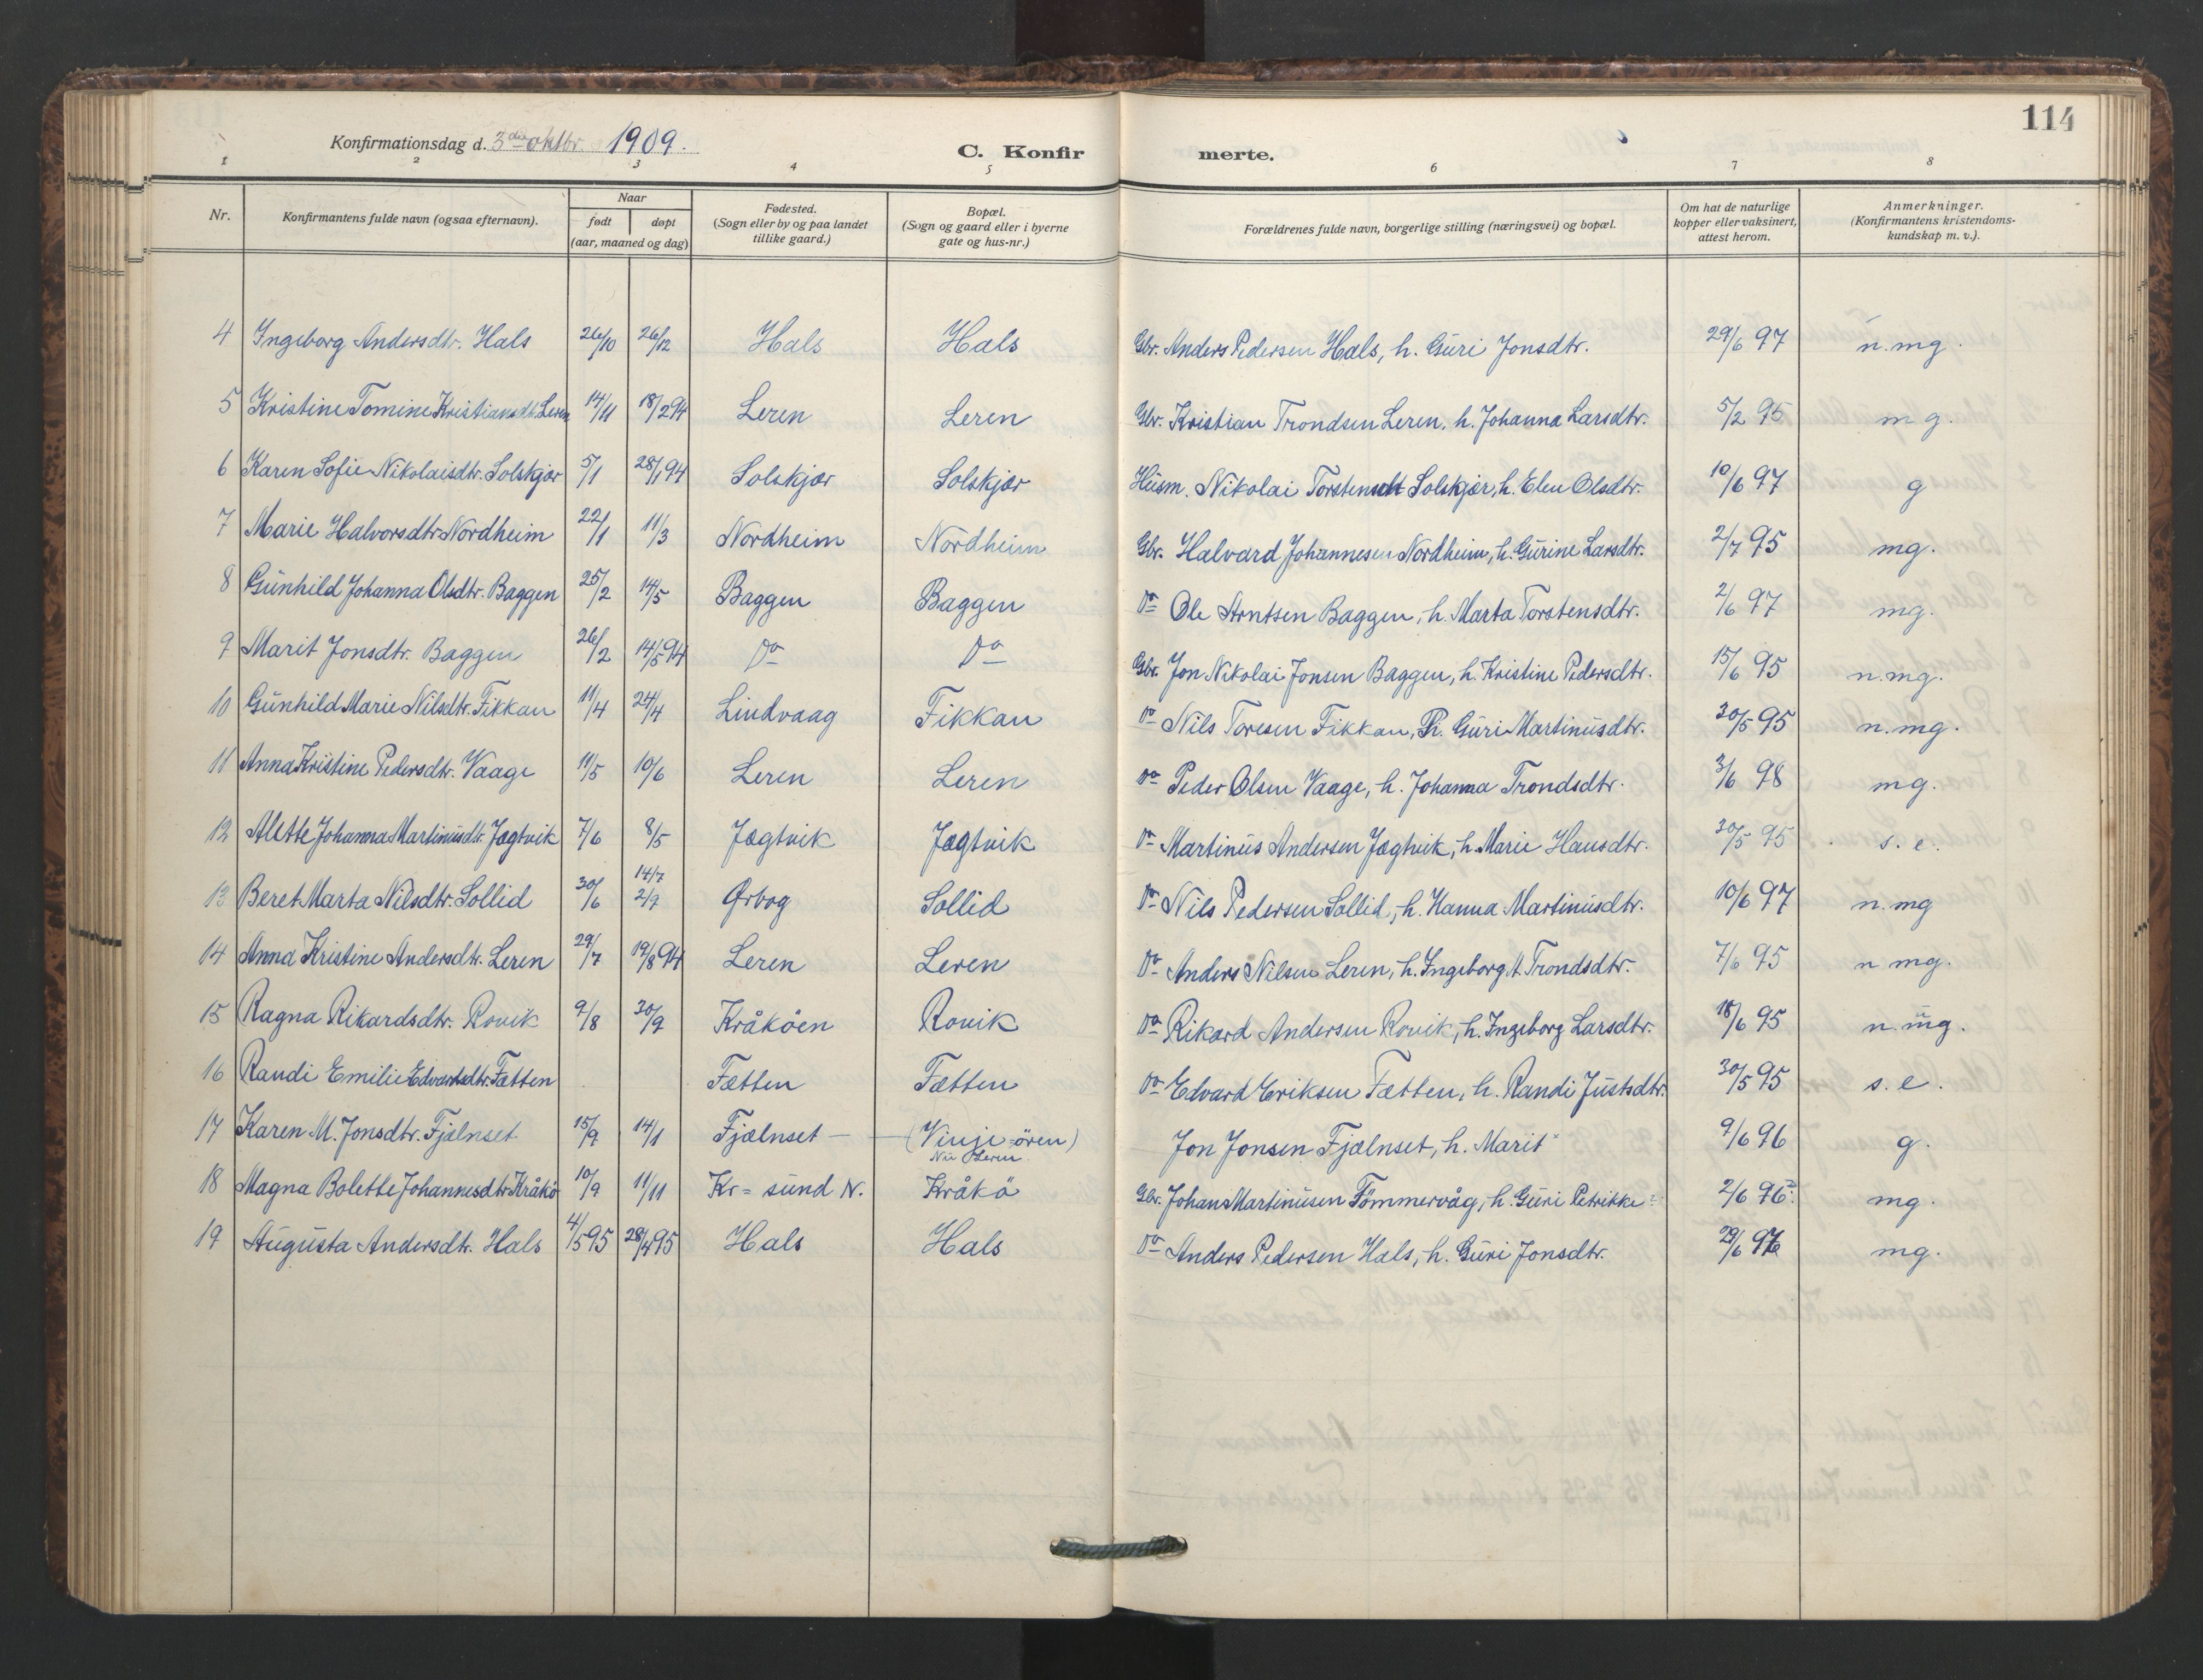 114
Konfirmationsdag d. 3die oktbr. 1909.
C. Konfirmerte.
1 2 3 4 5 6 7 8
Nr.
Konfirmantens fulde navn (ogsaa efternavn).
Naar
født
døpt
(aar, maaned og dag)
Fødested.
(Sogn eller by og paa landet
tillike gaard.)
Bopæl.
(Sogn og gaard eller i byerne
gate og hus-nr.)
Forældrenes fulde navn, borgerlige stilling (næringsvei) og bopæl.
Om hat de naturlige
kopper eller vaksinert,
attest herom.
Anmerkninger.
(Konfirmantens kristendoms-
kundskap m. v.).
4 Ingeborg Andersdtr. Hals 26/10 26/12 Hals Hals Gbr. Anders Pedersen Hals, h. Guri Jonsdtr. 29/6 97 n.mg.
5 Kristine Tomine Kristiansdtr. Leren 14/11 18/2 94 Leren Leren Gbr. Kristian Trondsen Leren, h. Johanna Larsdtr. 5/2 95 mg.
6 Karen Sofie Nikolaisdtr. Solskjær 5/1 28/1 94 Solskjær Solskjær Husm. Nikolai Torstensen Solskjær, h. Elen Olsdtr. 10/6 97 g
7 Marie Halvorsdtr. Nordheim 22/1 11/3 Nordheim Nordheim Gbr. Halvard Johannesen Nordheim, h. Gurine Larsdtr. 2/7 95 mg.
8 Gunhild Johanna Olsdtr. Baggen 25/2 14/5 Baggen Baggen Do Ole Arntsen Baggen, h. Marta Torstensdtr. 2/6 97 mg.
9 Marit Jonsdtr. Baggen 26/2 14/5 94 Do Do Gbr. Jon Nikolai Jonsen Baggen, h. Kristine Pedersdtr. 15/6 95 n.mg.
10 Gunhild Marie Nilsdtr. Fikkan 11/4 24/4 Lindvaag Fikkan Do Nils Toresen Fikkan, h. Guri Martinusdtr. 30/5 95 n.mg.
11 Anna Kristine Pedersdtr. Vaage 11/5 10/6 Leren Leren Do Peder Olsen Vaage, h. Johanna Trondsdtr. 3/6 98 mg.
12 Alette Johanna Martinusdtr. Jægtvik 7/6 8/5 Jægtvik Jægtvik Do Martinus Andersen Jægtvik, h. Marie Hansdtr. 30/5 95 s.e.
13 Beret Marta Nilsdtr. Sollid 30/6 14/7 2/9 Ørbog Sollid Do Nils Pedersen Sollid, h. Hanna Martinusdtr. 10/6 97 n.mg
14 Anna Kristine Andersdtr. Leren 29/7 19/8 94 Leren Leren Do Anders Nilsen Leren, h. Ingeborg A. Trondsdtr. 7/6 95 n mg.
15 Ragna Rikardsdtr. Rovik 9/8 30/9 Kråköen Rovik Do Rikard Andersen Rovik, h. Ingeborg Larsdtr. 18/6 95 n.mg.
16 Randi Emilie Edvardsdtr. Fætten Fætten Fætten Do Edvard Eriksen Fætten, h. Randi Justsdtr. 30/5 95 s.e.
17 Karen M. Jonsdtr. Fjælnset 15/9 14/1 Fjælnset (Vinjeören) Jon Jonsen Fjælnset, h. Marit 9/6 96 g.
Nu Leren
18 Magna Bolette Johannesdtr. Kråkö 10/9 11/11 Kr=sund N. Kråkö Gbr. Johan Martinusen Tömmervåg, h. Guri Petrikke 2/6 96 mg.
19 Augusta Andersdtr. Hals 4/5 95 28/4 95 Hals Hals Do Anders Pedersen Hals, h. Guri Jonsdtr. 29/6 mg.